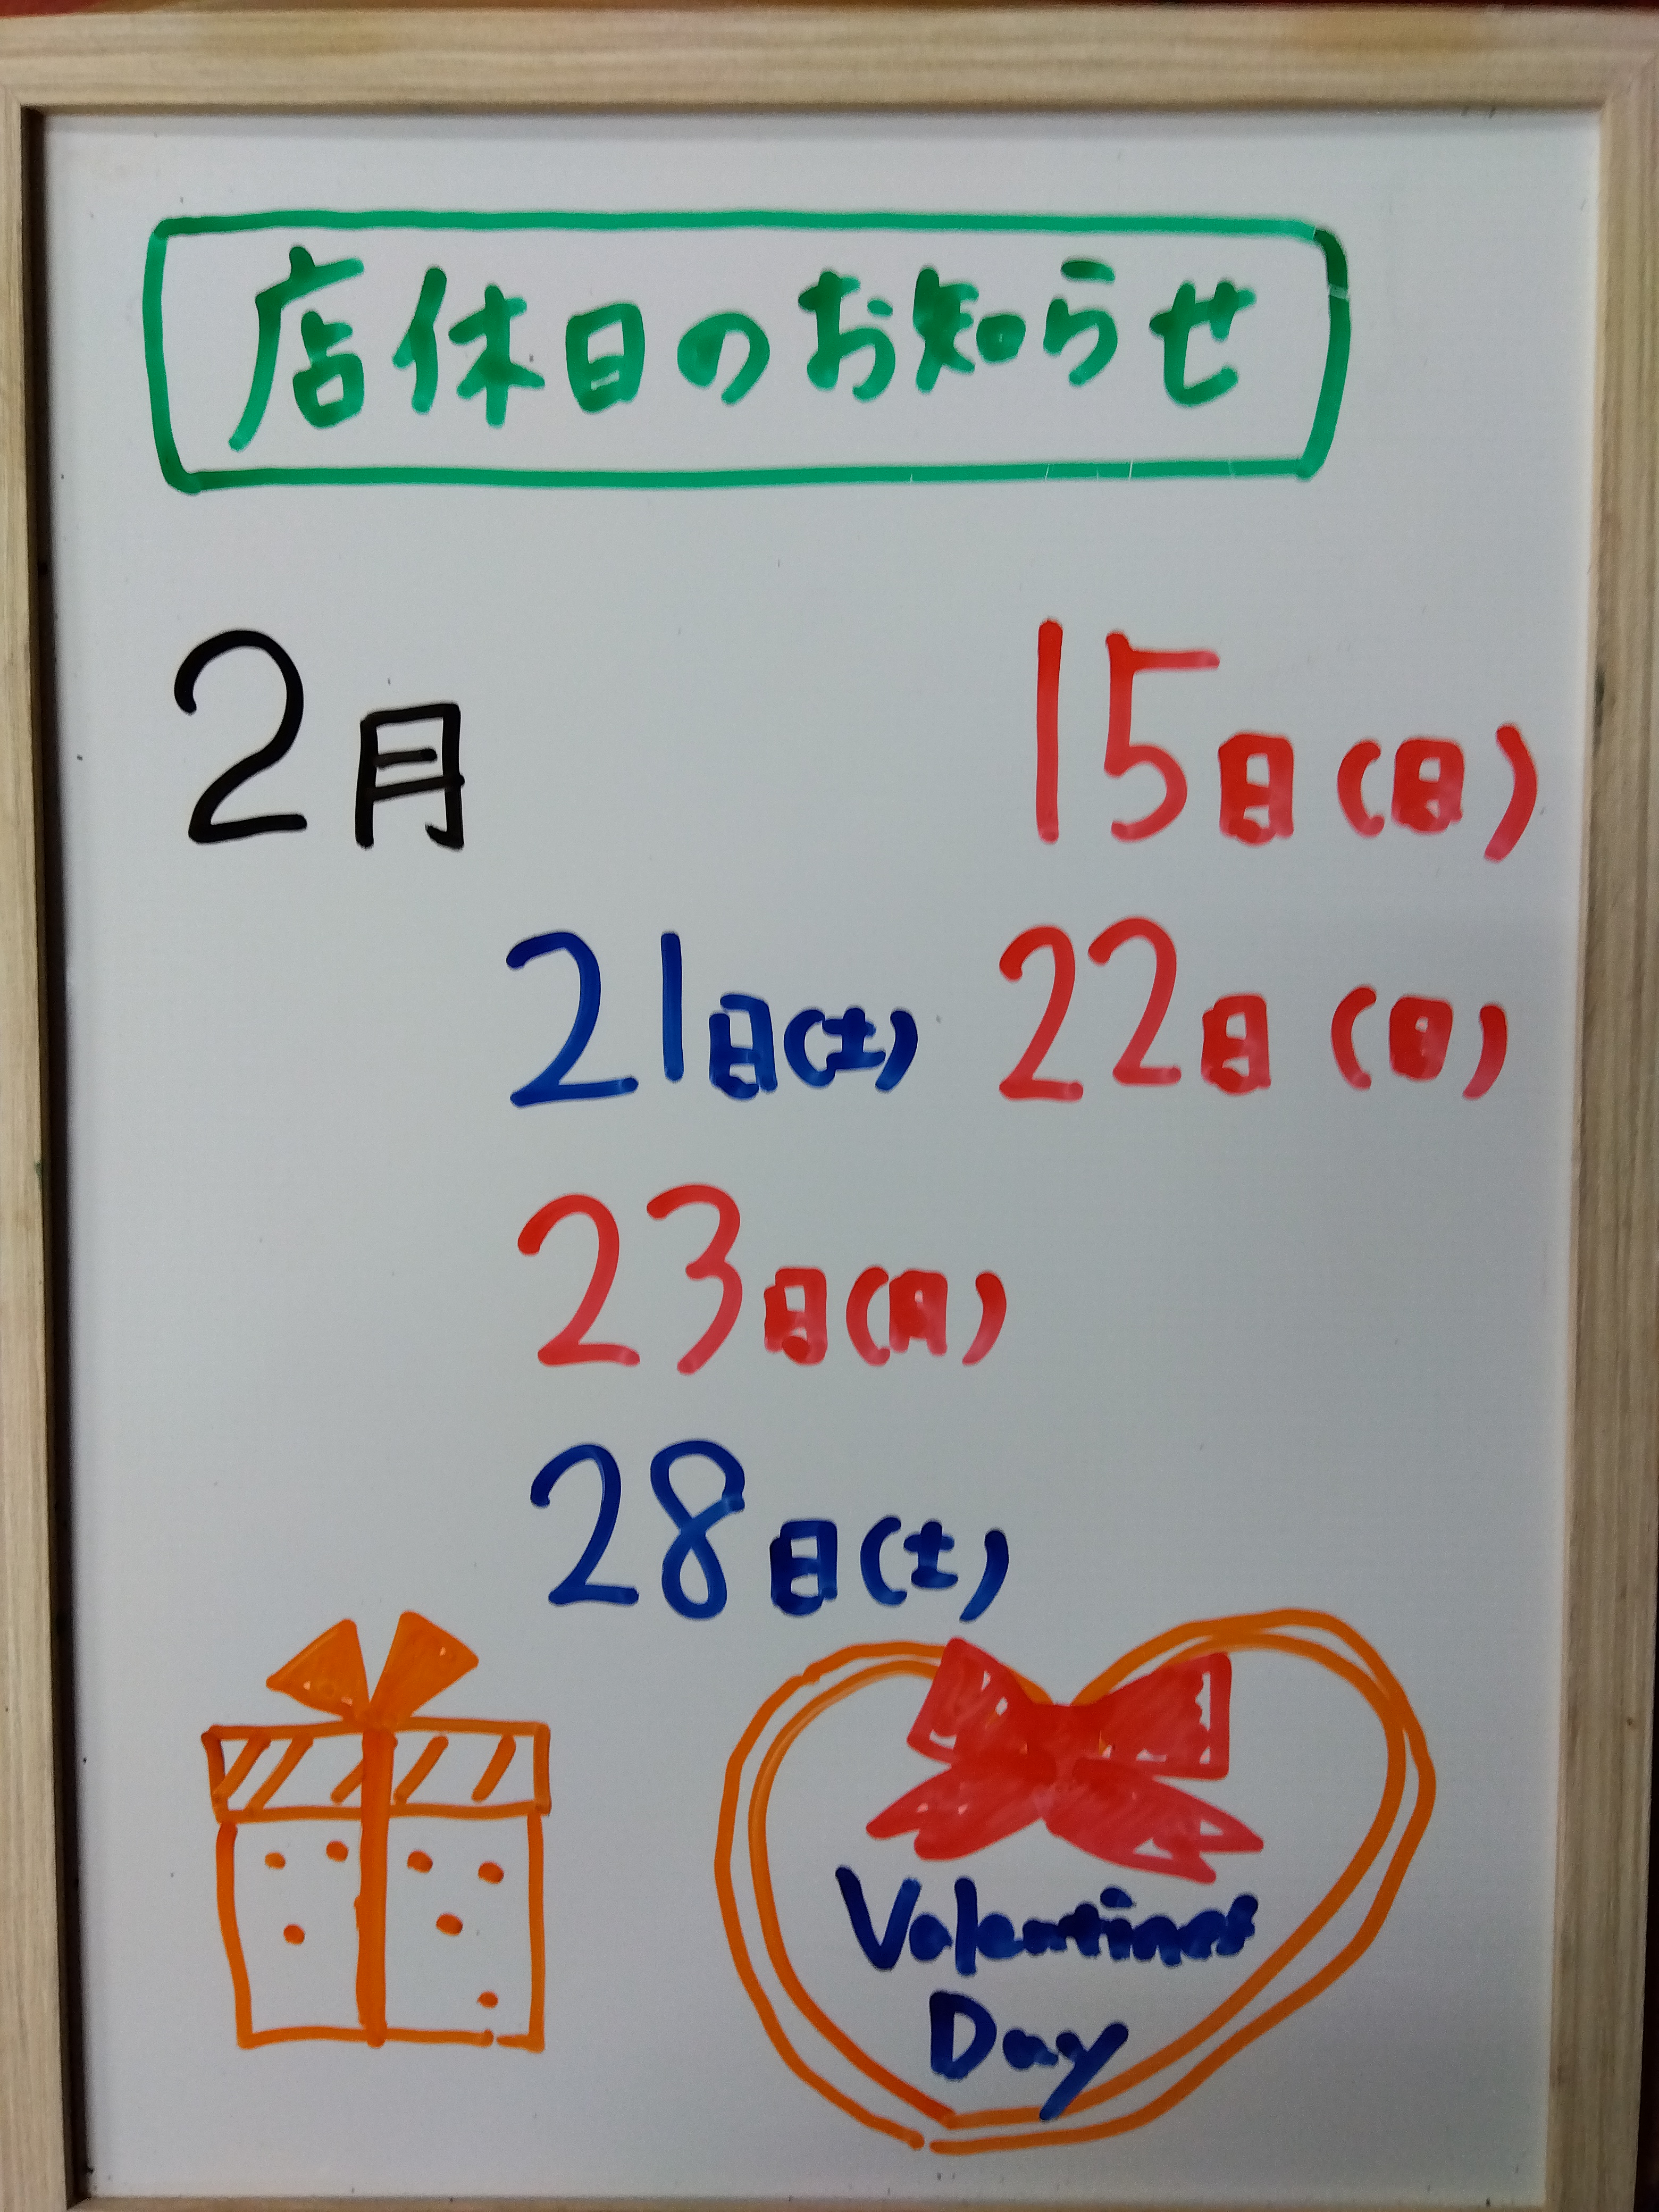 店休日のお知らせ
2月 15日(日)
21日(土) 22日(日)
23日(月)
28日(土)
Valentines
Day